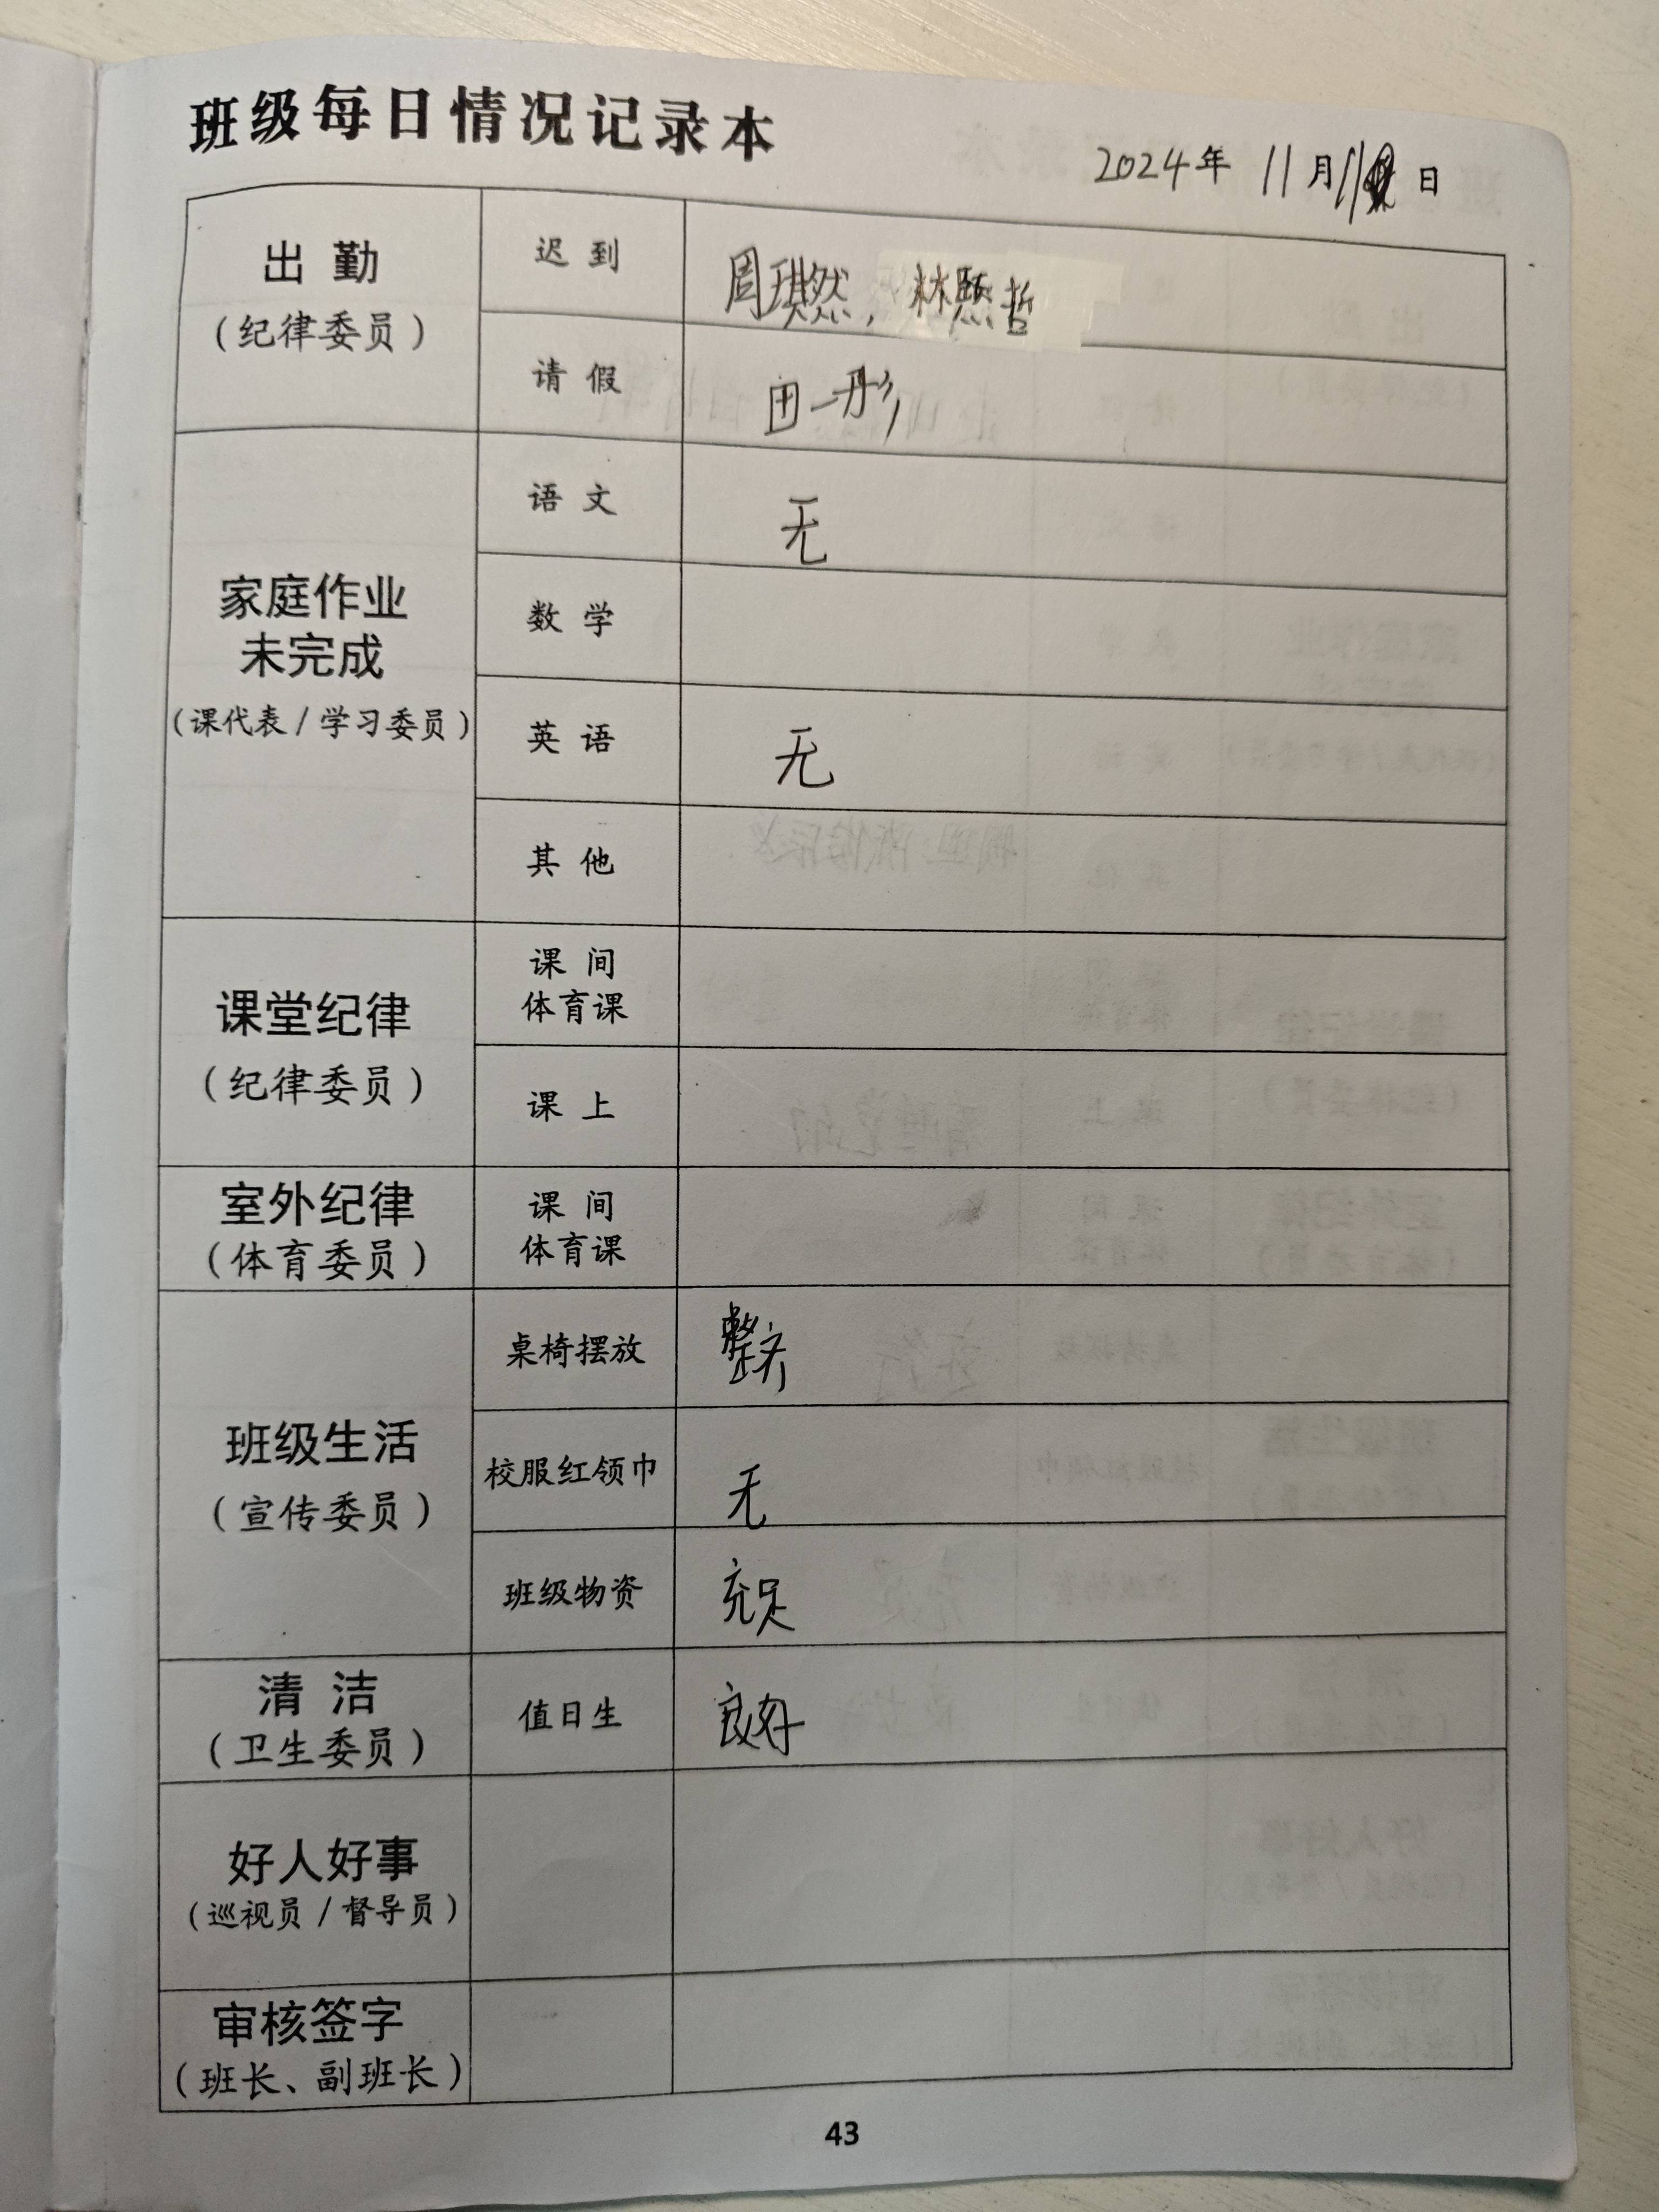 班级每日情况记录本
2024年 11月11日
出勤
(纪律委员)
迟到
周琪然，林熙哲
请假
田一彤
家庭作业
未完成
(课代表/学习委员)
语文
无
数学
英语
无
其他
课堂纪律
(纪律委员)
课间
体育课
课上
室外纪律
(体育委员)
课间
体育课
班级生活
(宣传委员)
桌椅摆放
整齐
校服红领巾
无
班级物资
充足
清洁
(卫生委员)
值日生
良好
好人好事
(巡视员/督导员)
审核签字
(班长、副班长)
43